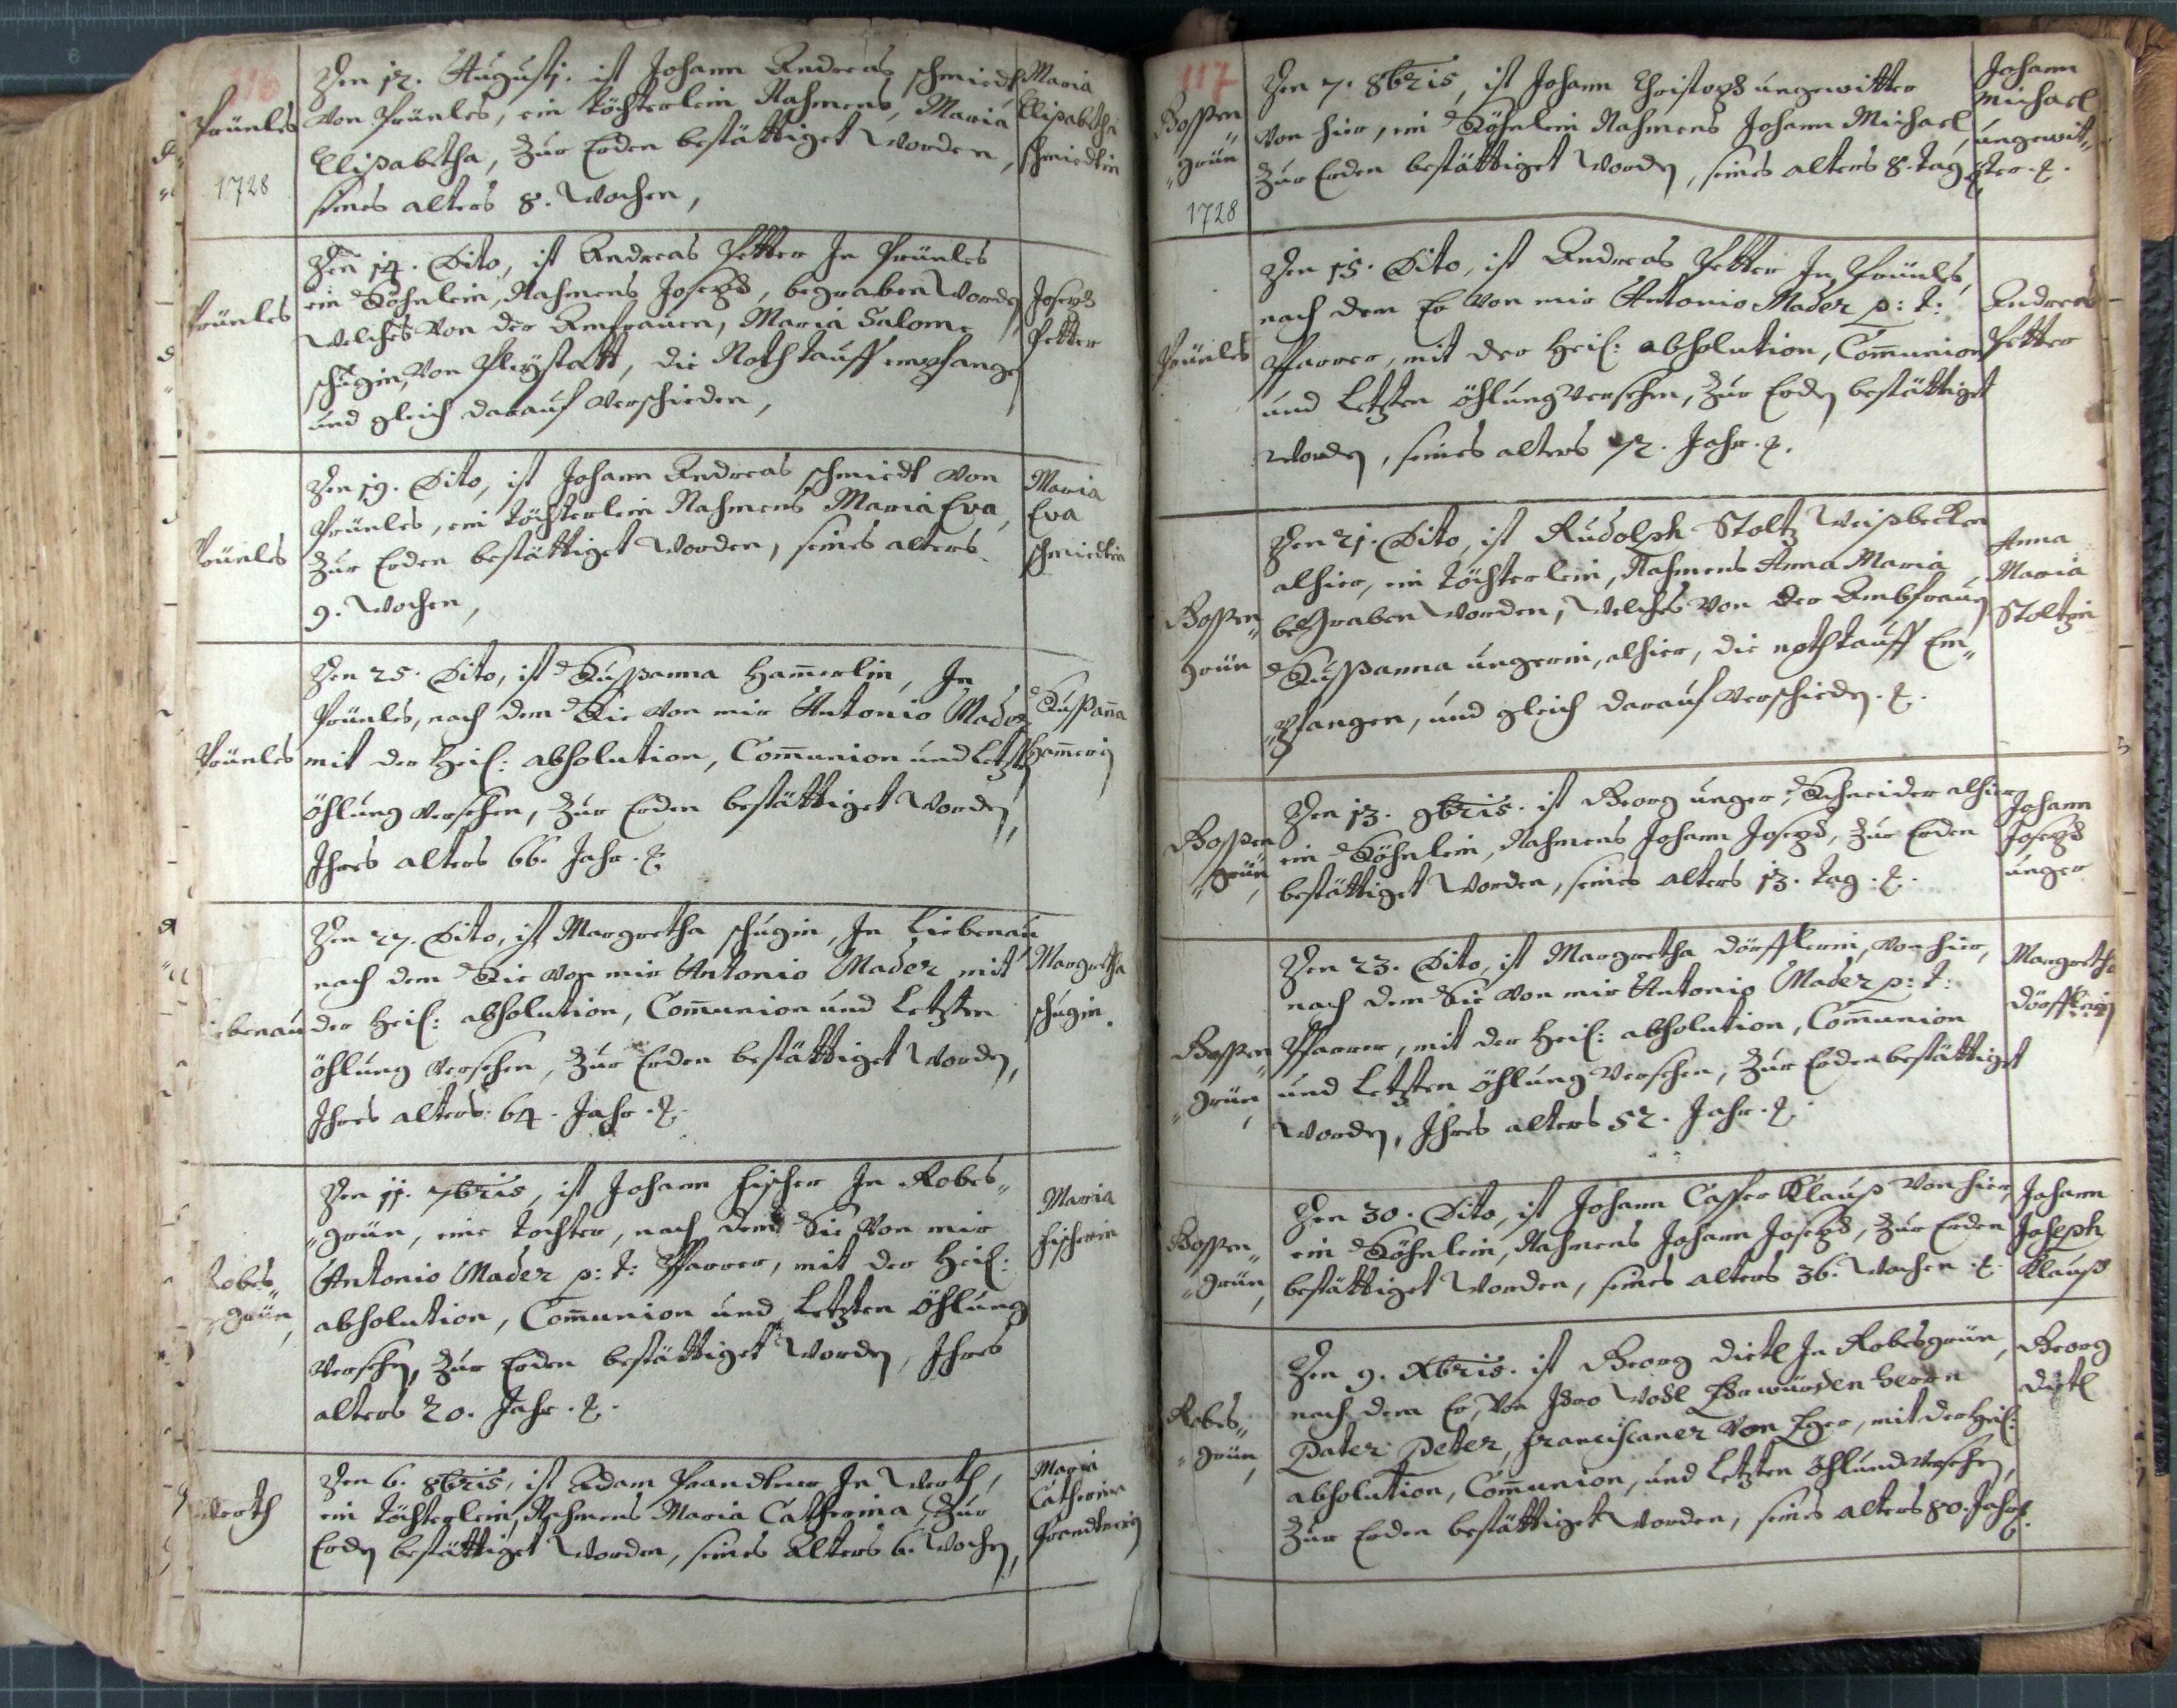 116
Prünles
1728
Den 12. Augusti. ist Johann Andreas schmiedt
Von Prünles, ein töchterlein Nahmens, Maria
Elisabetha, Zur Erden bestättiget Worden,
seines alters 8. Wochen,
Maria
Elisabetha
schmiedtin
Prünles
Den 14. Dito, ist Andreas Petter In Prünles
ein Söhnlein, Nahmens Joseph, begraben Worden
Welches Von der Amfrauen, Maria Salome
schugin, Von Pleystatt, die Noth tauff empfangen
und gleich darauf Verschieden,
Joseph
Petter
Prünles
Den 19. Dito, ist Johann Andreas schmiedt Von
Prünles, ein töchterlein Nahmens Maria Eva,
Zur Erden bestättiget Worden, seines alters
9. Wochen,
Maria
Eva
schmiedtin
Prünles
Den 25. Dito, ist Sussanna Ham̄erlin, In
Prünles, nach dem Sie Von mir Antonio Mader
mit der Heil: absolution, Com̄union und Letzten
öhlung Versehen, Zur Erden bestättiget Worden,
Ihres alters 66. Jahr.
Sussan̄a
Ham̄erin
Liebenau
Den 27. Dito, ist Margretha schugin, In Liebenau
nach dem Sie Von mir Antonio Mader mit
der Heil: absolution, Com̄union und Letzten
öhlung Versehen, Zur Erden bestättiget Worden,
Ihres alters: 64. Jahr.
Margretha
schugin.
Robes„
„grün,
Den 11. 7bris, ist Johann Fischer In Robes„
„grün, eine tochter, nach dem Sie Von mir
Antonio Mader p: t: Pfarrer, mit der Heil:
absolution, Com̄union und Letzten öhlung
Versehen, Zur Erden bestättiget Worden, Ihres
alters 20. Jahr.
Maria
Fischerin
Werth
Den 6. 8bris, ist Adam Prandtner In Werth,
ein töchterlein, Nahmens Maria Catherina, Zur
Erden bestättiget Worden, seines Alters 6. Wochen,
Maria
Catherina
Prandtnerin
117
Bossen
„grün
1728
Den 7. 8bris, ist Johann Christoph ungewitter
Von hier, ein Söhnlein Nahmens Johann Michael,
Zur Erden bestättiget Worden, seines alters 8. tag
Johann
Michael
ungewitt„
ter.
Prünles
Den 15. Dito, ist Andreas Petter In Prünles,
nach dem Er Von mir Antonio Mader p: t:
Pfarrer, mit der Heil: absolution, Com̄union
und Letzten öhlung Versehen, Zur Erden bestättiget
Worden, seines alters 72. Jahr.
Andreas
Petter
Bossen„
grün
Den 21. Dito, ist Rudolph Stoltz Weissbecken
alhier, ein töchterlein, Nahmens Anna Maria
beGraben Worden, Welches Von der Ambfrauen
Sussanna ungerin, alhier, die nothtauff Em„
„pfangen, und gleich darauf Verschieden.
Anna
Maria
Stoltzin
Bossen
„grün,
Den 13. 9bris. ist Georg unger, Schneider alhier
ein Söhnlein, Nahmens Johann Joseph, Zur Erden
bestättiget Worden, seines alters 13. tag.
Johann
Joseph
unger
Bossen„
„grün,
Den 23. Dito, ist Margretha dörfflerin, Von hier,
nach dem Sie Von mir Antonio Mader p: t:
Pfarrer, mit der Heil: absolution, Com̄union
und Letzten öhlung Versehen, Zur Erden bestättiget
Worden, Ihres alters 52. Jahr.
Margretha
dörfflerin
Bossen„
„grün,
Den 30. Dito, ist Johann Casper Klauss Von hier,
ein Söhnlein, Nahmens Johann Joseph, Zur Erden
bestättiget Worden, seines alters 36. Wochen.
Johann
Joseph
Klauss
Robes„
„grün,
Den 9. Xbris. ist Georg dietl In Robesgrün,
nach dem Er, Von Ihro Wohl Ehrwürden Herrn
Pater Peter, franciscaner Von Eger, mit der Heil:
absolution, Com̄union, und Letzten öhlund Versehen,
Zur Erden bestättiget Worden, seines alters 80. Jahr.
Georg
dietl